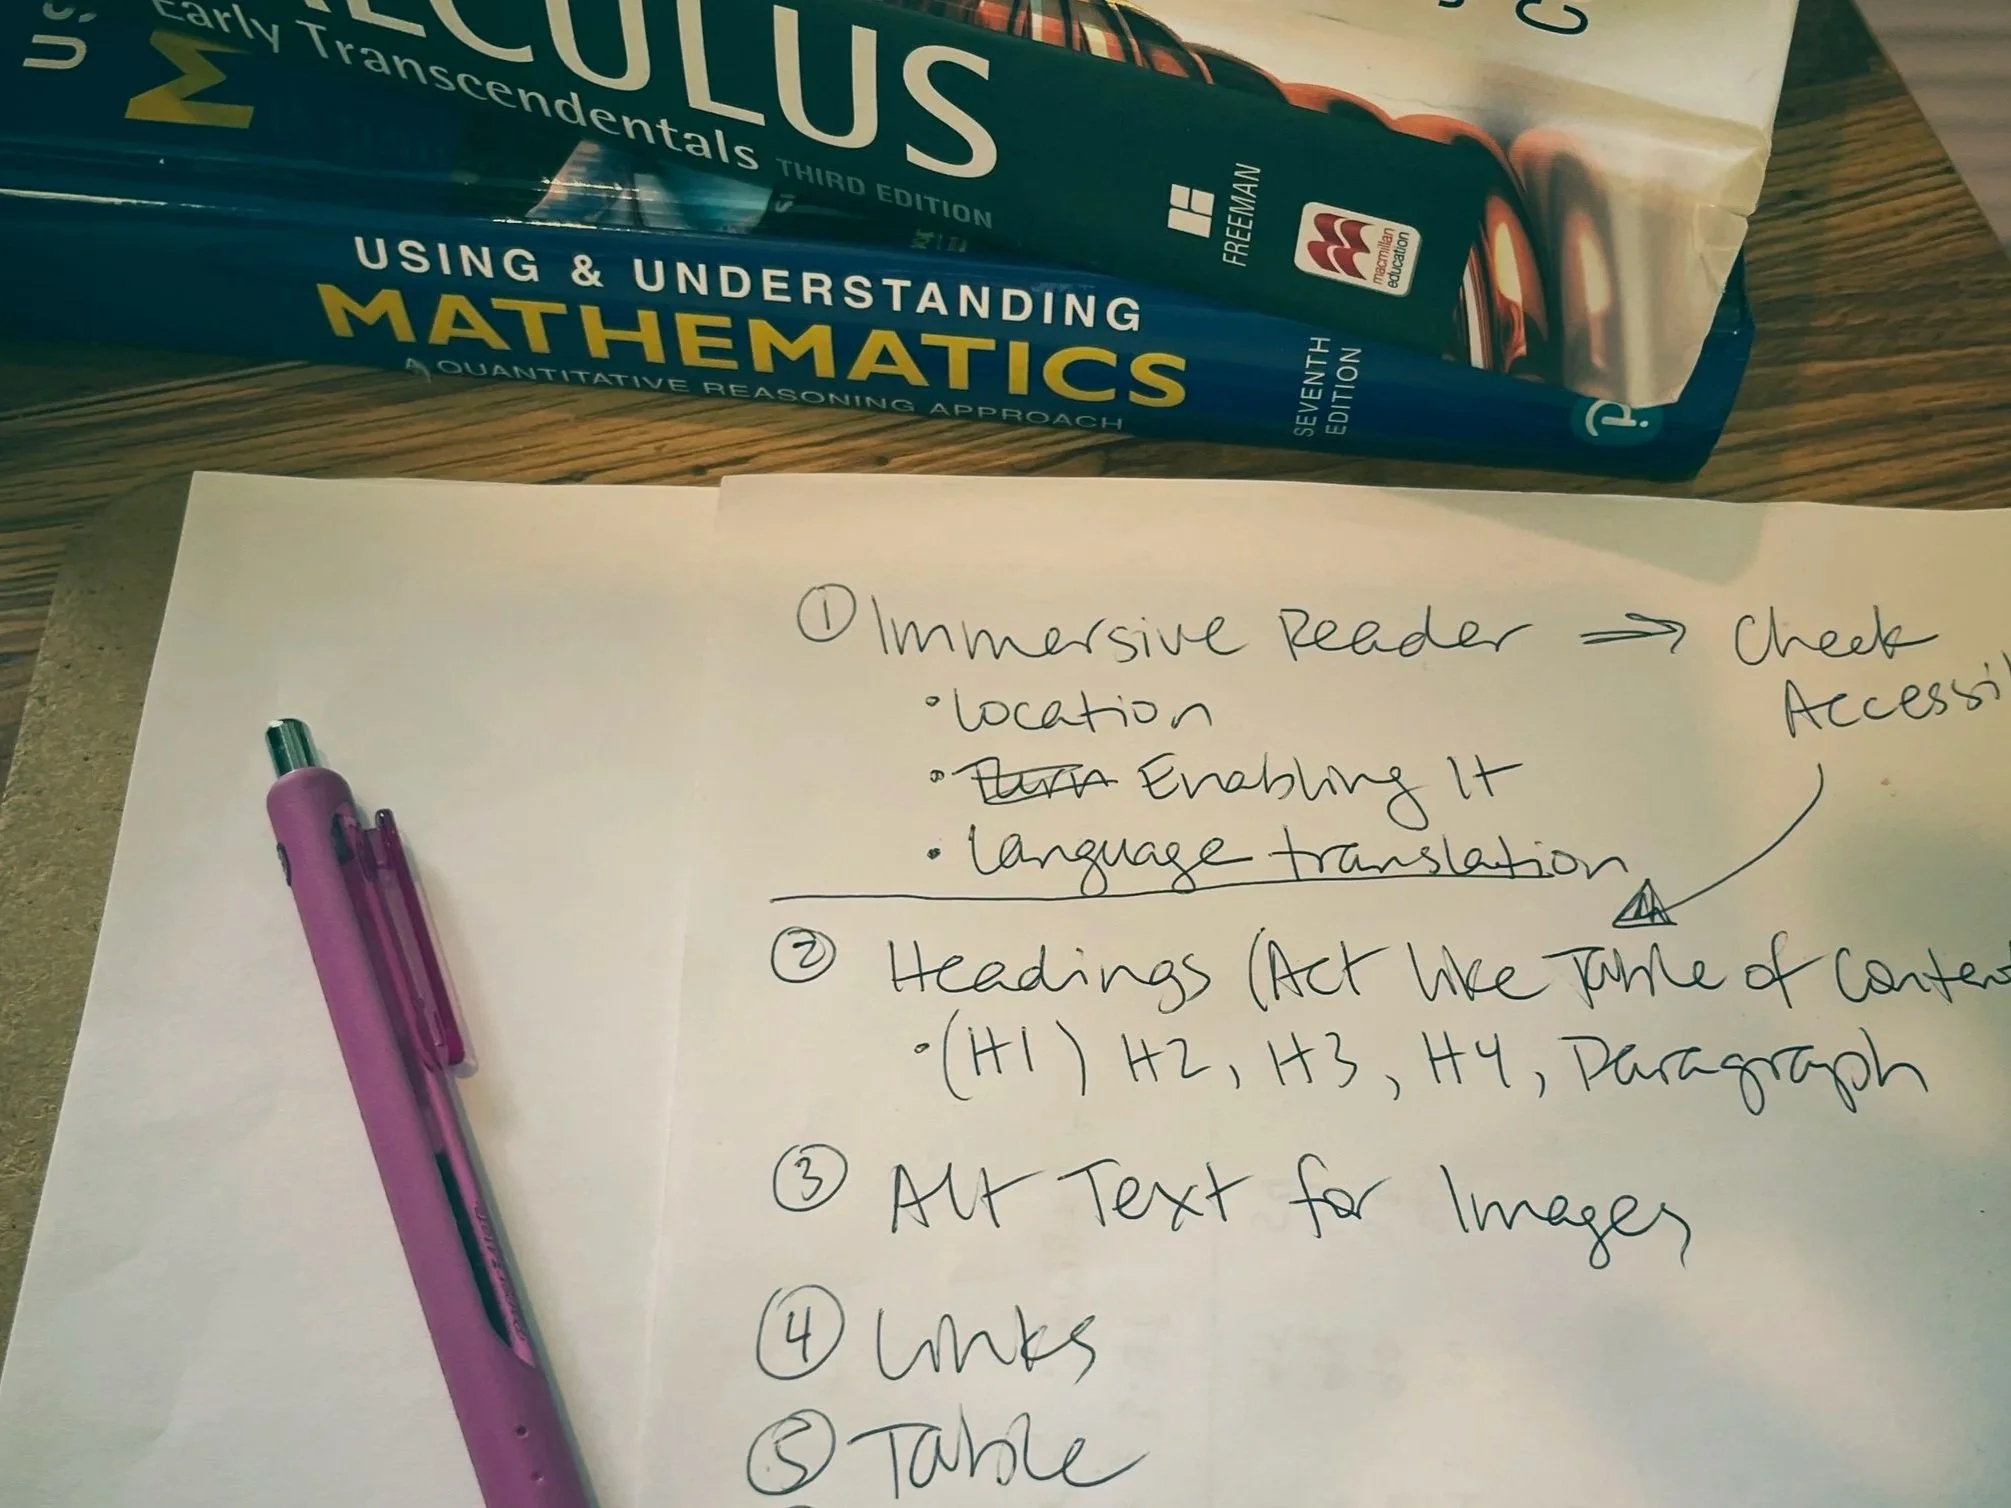 CULUS
Early Transcendentals THIRD EDITION
FREEMAN
macmillan
education
USING & UNDERSTANDING
MATHEMATICS
A QUANTITATIVE REASONING APPROACH
SEVENTH
EDITION
① Immersive Reader ⇒ Check
Accessi
• Location
• Enabling It
• Language translation
② Headings (Act like Table of Conten
• (H1) H2, H3, H4, Paragraph
③ Alt Text for Images
④ Links
⑤ Table